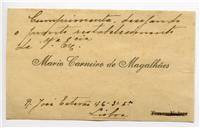 Cumprimenta, desejando
o prompto restabelecimento
de V. Ex.cia
Mario Carneiro de Magalhães
R. José Estevão 46-3º Eº
Lisboa